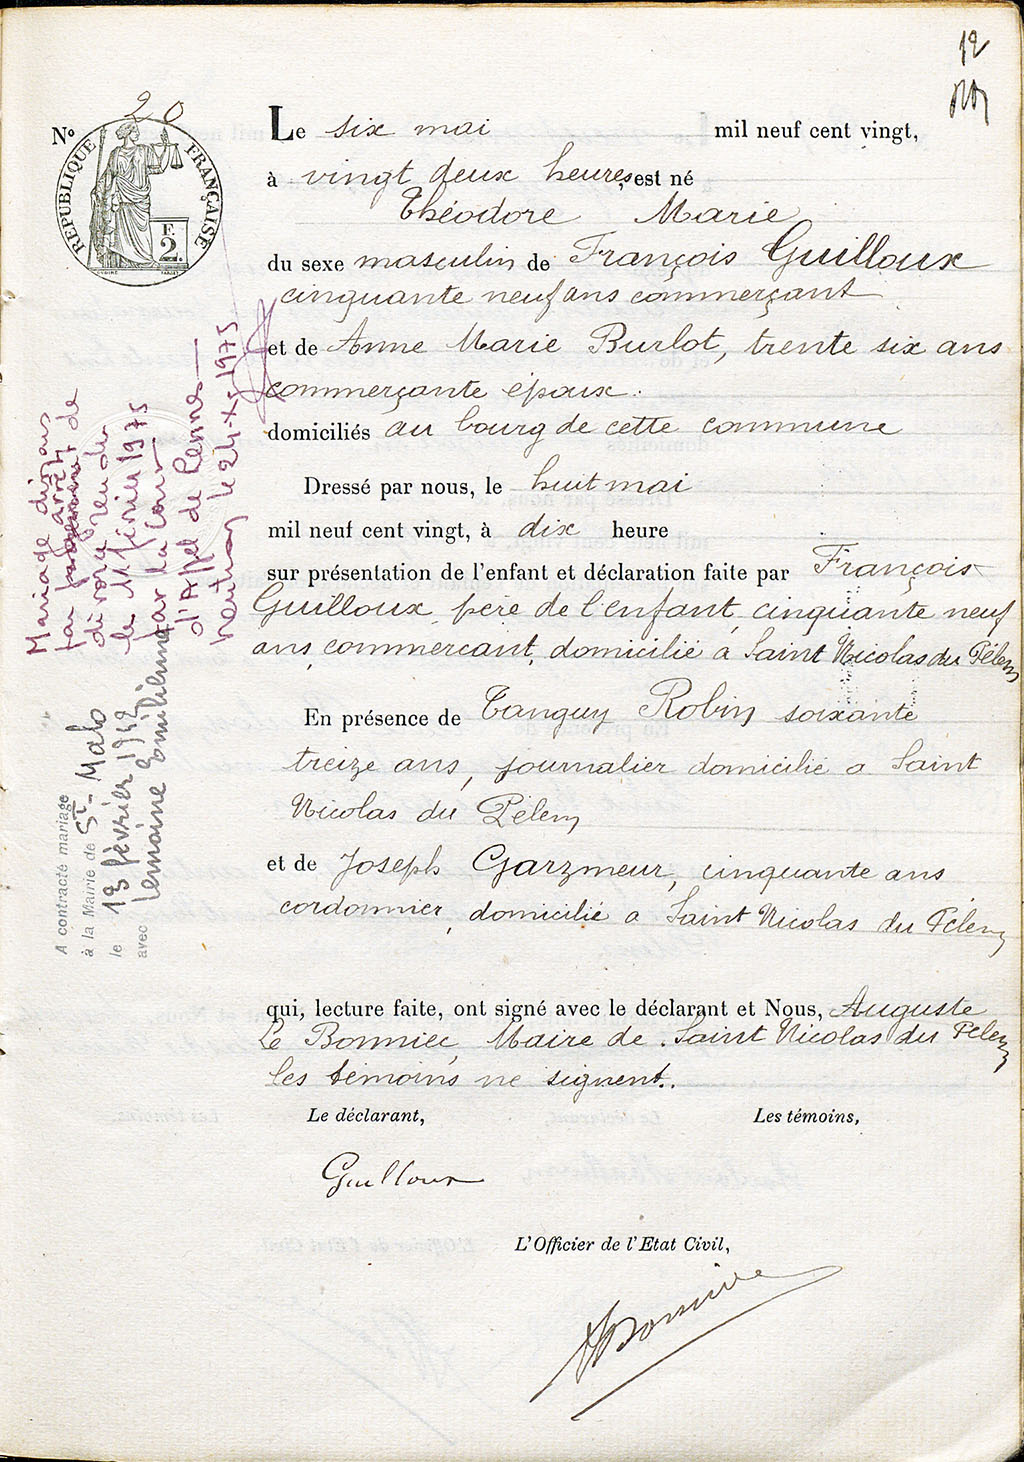 12
N° 20
RÉPUBLIQUE FRANÇAISE
F
2.
Le six mai mil neuf cent vingt,
à vingt deux heures, est né
Théodore Marie
du sexe masculin de François Guilloux
cinquante neuf ans commerçant
et de Anne Marie Burlot, trente six ans
commerçante époux.
domiciliés au bourg de cette commune
Dressé par nous, le huit mai
mil neuf cent vingt, à dix heure
sur présentation de l'enfant et déclaration faite par François
Guilloux, père de l'enfant, cinquante neuf
ans, commercant, domicilié à Saint Nicolas du Pélem
En présence de Tanguy Robin soixante
treize ans, journalier domicilié a Saint
Nicolas du Pélem
et de Joseph Garzmeur, cinquante ans
cordonnier, domicilié a Saint Nicolas du Pélem
qui, lecture faite, ont signé avec le déclarant et Nous, Auguste
Le Bonniec, Maire de Saint Nicolas du Pélem
les témoins ne signent.
Le déclarant,
Les témoins,
Guilloux
L'Officier de l'Etat Civil,
Mariage dissous
par arrêt de
divorce rendu
le 11 février 1975
par la Cour
d'Appel de Rennes
le 24-X-1975
A contracté mariage
à la Mairie de St-Malo
le 13 février 1942
avec Lemoine Emilienne